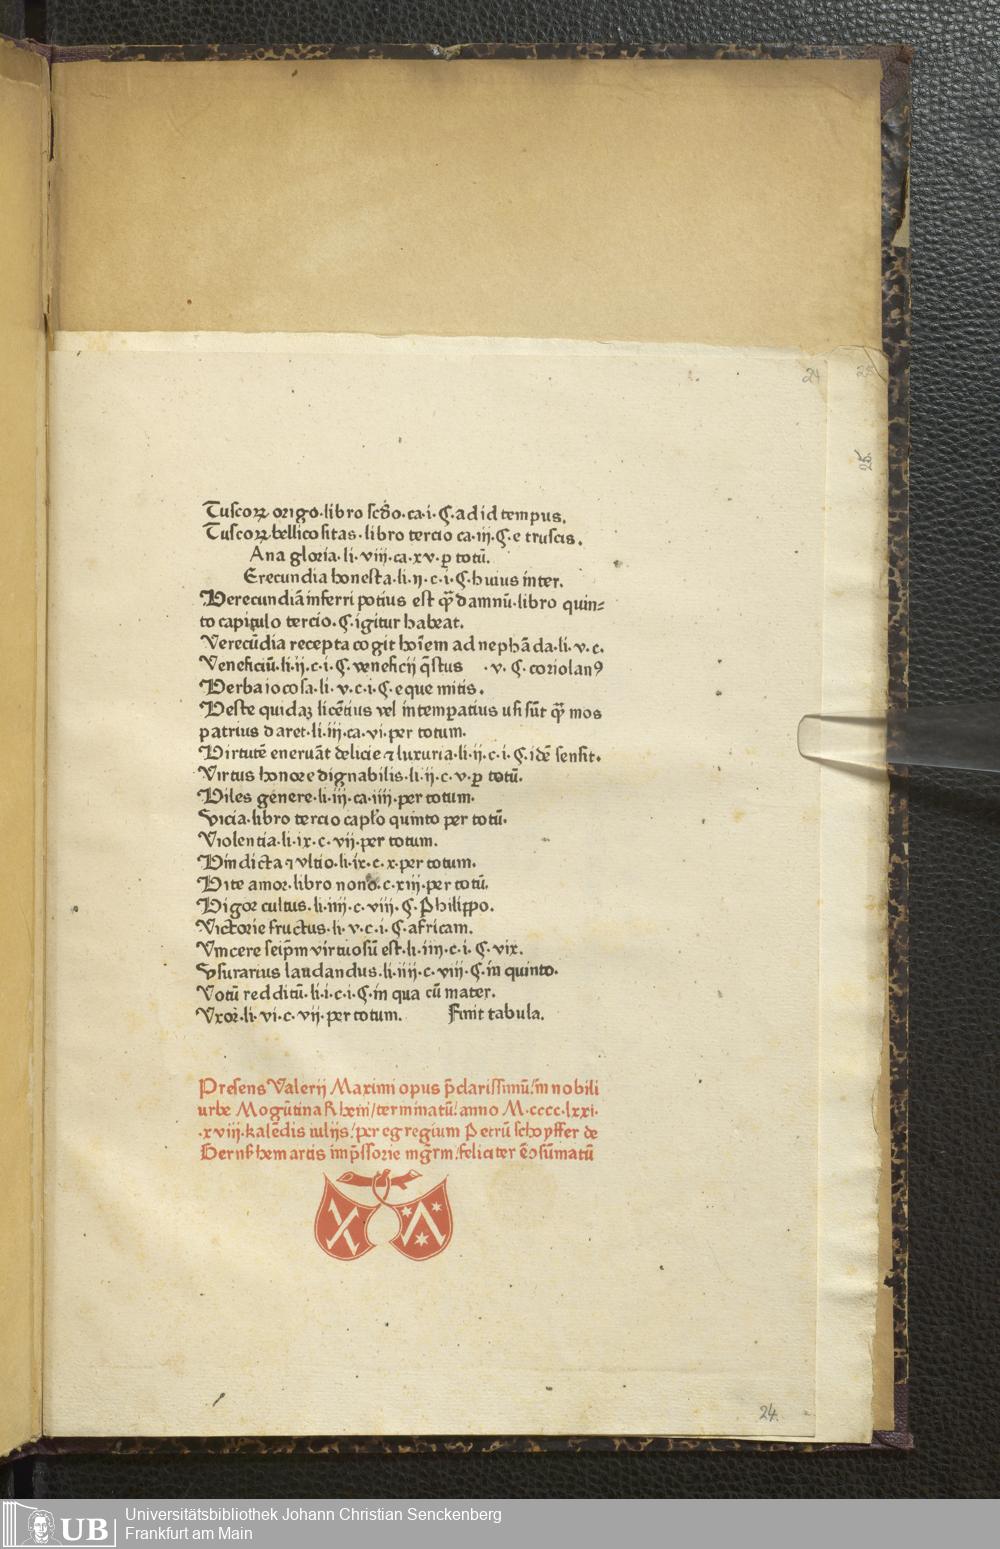 24
25
25.
Tuscoꝝ origo·libro scd̄o·ca·i·ꝯ·ad id tempus.
Tuscoꝝ bellicositas·libro tercio ca·iij·ꝯ·e truscis.
Ana gloria·li·viij·ca·xv·ꝑ totū.
Erecundia honesta·li·ij·c·i·ꝯ·huius inter.
Verecundiā inferri potius est qͣꝫ damnū·libro quin⸗
to capitulo tercio·ꝯ·igitur habeat.
Verecūdia recepta cogit hoīem ad nephāda·li·v·c.
Veneficiū·li·ij·c·i·ꝯ·veneficij q̄stus ·v·ꝯ·coriolanꝰ
Verba iocosa·li·v·c·i·ꝯ·eque mitis.
Veste quidaꝫ licētius vel intemperatius usi sūt qͣꝫ mos
patrius daret·li·iij·ca·vi·per totum.
Virtutē eneruāt delicie ⁊ luxuria·li·ij·c·i·ꝯ·idē sensit.
Virtus honore dignabilis·li·ij·c·v·ꝑ totū.
Viles genere·li·iij·ca·iiij·per totum.
Vicia·libro tercio caplo quinto per totū.
Violentia·li·ix·c·vij·per totum.
Vindicta ⁊ vltio·li·ix·c·x·per totum.
Vite amor·libro nono·c·xiij·per totū.
Vigor cultus·li·iiij·c·viij·ꝯ·Philippo.
Victorie fructus·li·v·c·i·ꝯ·africam.
Vincere seip̄m virtuosū est·li·iiij·c·i·ꝯ·vix.
Vsurarius laudandus·li·iiij·c·viij·ꝯ·in quinto.
Votū redditū·li·i·c·i·ꝯ·in qua cū mater.
Vxor·li·vi·c·vij·per totum. Finit tabula.
Presens Valerij Maximi opus p̄clarissimū/in nobili
urbe Mogūtina Rheni/terminatū/anno M·cccc·lxxi·
·xviij·kalēdis iulijs/per egregium Petrū schoyffer de
Gernsshem artis imp̄ssorie mgr̄m/feliciter ē ꝯsūmatū
24.
UB
Universitätsbibliothek Johann Christian Senckenberg
Frankfurt am Main